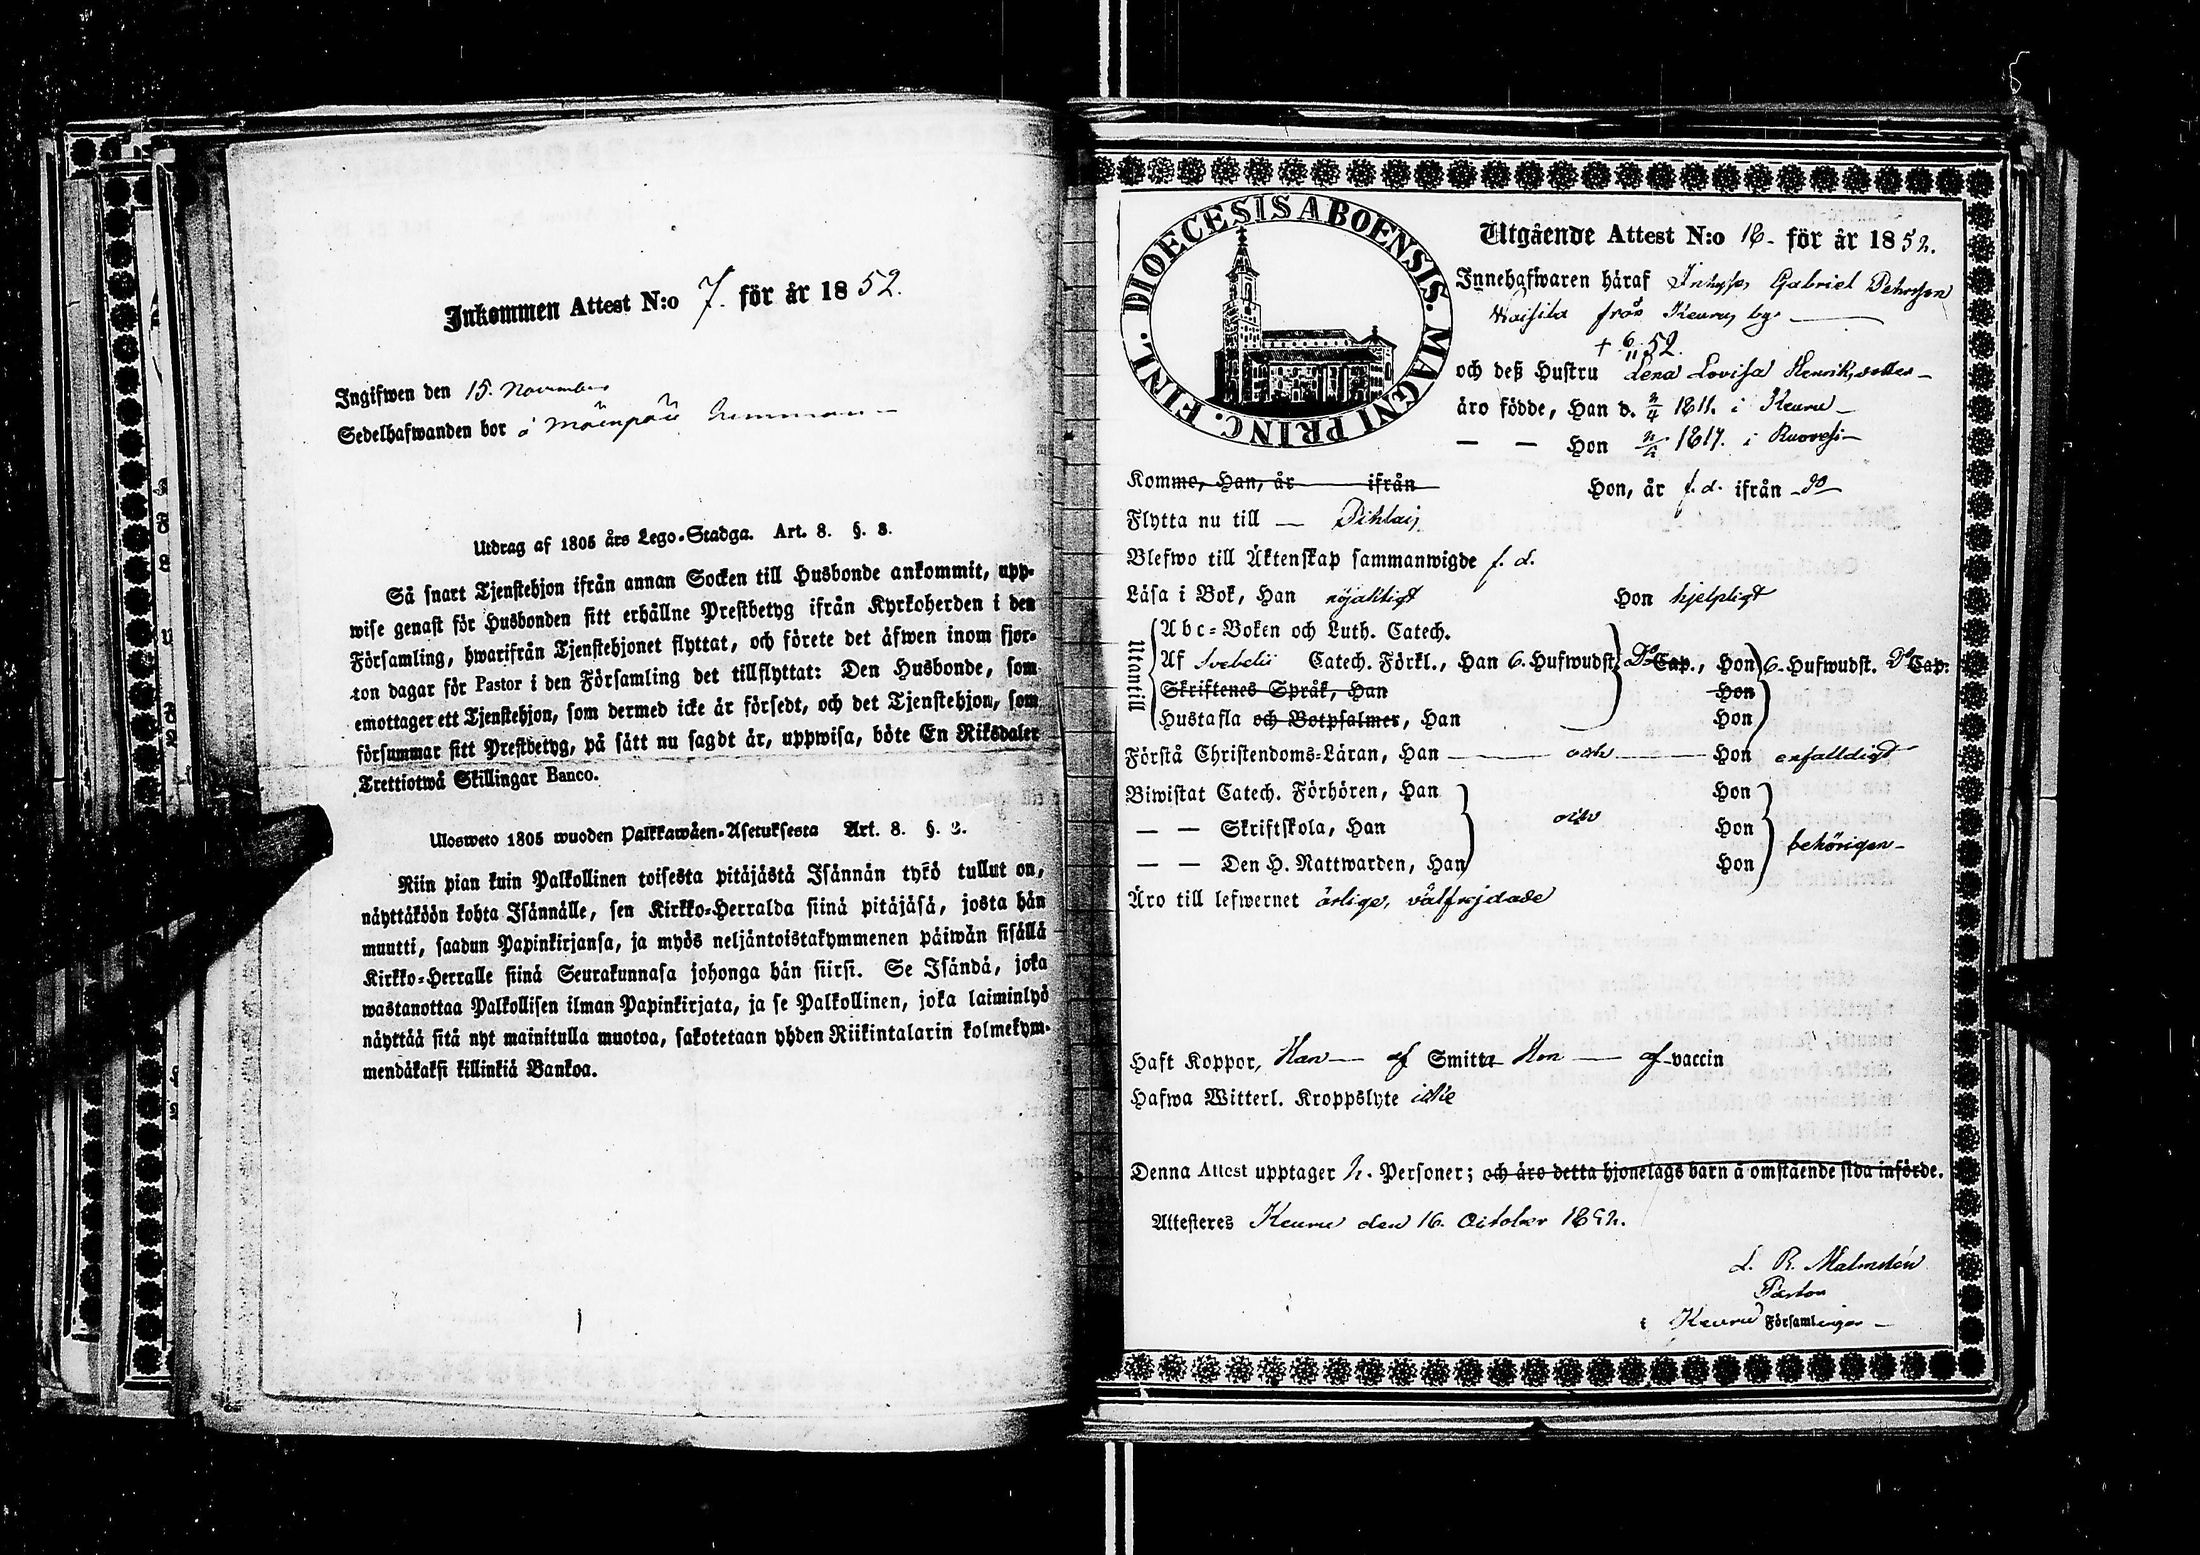 Inkommen Attest N:o 7. för år 1852.
Ingifwen den 15. November
Sedelhafwanden bor å
Utdrag af 1805 års Lego-Stadga. Art. 8. §. 3.
Så snart Tjenstehjon ifrån annan Socken till Husbonde ankommit, upp-
wise genast för Husbonden sitt erhållne Prestbetyg ifrån Kyrkoherden i den
Församling, hwarifrån Tjenstehjonet flyttat, och förete det äfwen inom fjor-
ton dagar för Pastor i den Församling det tillflyttat: Den Husbonde, som
emottager ett Tjenstehjon, som dermed icke är försedt, och det Tjenstehjon, som
försummar sitt Prestbetyg, på sätt nu sagdt är, uppwisa, böte En Riksdaler
Trettiotwå Skillingar Banco.
Ulosweto 1805 wuoden Palkkawäen-Asetuksesta Art. 8. §. 3.
Niin pian kuin Palkollinen toisesta pitäjästä Isännän tykö tullut on,
näyttäköön kohta Isännälle, sen Kirkko-Herralda siinä pitäjäsä, josta hän
muutti, saadun Papinkirjansa, ja myös neljäntoistakymmenen päiwän sisällä
Kirkko-Herralle siinä Seurakunnasa johonga hän siirsi. Se Isändä, joka
wastanottaa Palkollisen ilman Papinkirjata, ja se Palkollinen, joka laiminlyö
näyttää sitä nyt mainitulla muotoa, sakotetaan yhden Riikintalarin kolmekym-
mendäkaksi killinkiä Bankoa.
DIOECESIS ABOENSIS. MAGNI PRINC. FINL.
Utgående Attest N:o 18. för år 1852.
Innehafwaren häraf Inhyses Gabriel Pehrsson
från Keuru by.
+ 6/11 52.
och deß Hustru Lena Lovisa Henriksdotter
äro födde, Han d. 3/4 1811. i Keuru
— — Hon 1817. i Ruovesi
Komme, Han, år ifrån Hon, år f. d. ifrån do
Flytta nu till — Pihlaj
Blefwo till Äktenskap sammanwigde f. d.
Läsa i Bok, Han nöjaktigt Hon hjelpligt
Utantill
Abc-Boken och Luth. Catech.
Af Svebelii Catech. Förkl., Han 6. Hufwudst. Do Cap., Hon 6. Hufwudst. Do Cap.
Skriftenes Språk, Han Hon
Hustafla och Botpsalmer, Han Hon
Förstå Christendoms-Läran, Han — och — Hon enfalldigt
Biwistat Catech. Förhören, Han Hon
— — Skriftskola, Han och Hon behörigen
— — Den H. Nattwarden, Han Hon
Äro till lefwernet ärlige, välfrejdade
Haft Koppor, Han — af Smitta Hon — af vaccin
Hafwa Witterl. Kroppslyte icke
Denna Attest upptager 2. Personer; och äro detta hjonelags barn å omstående sida införde.
Attesteres Keuru den 16. October 1852.
L. R. Malmstén
Pastor
i Keuru Församlingar